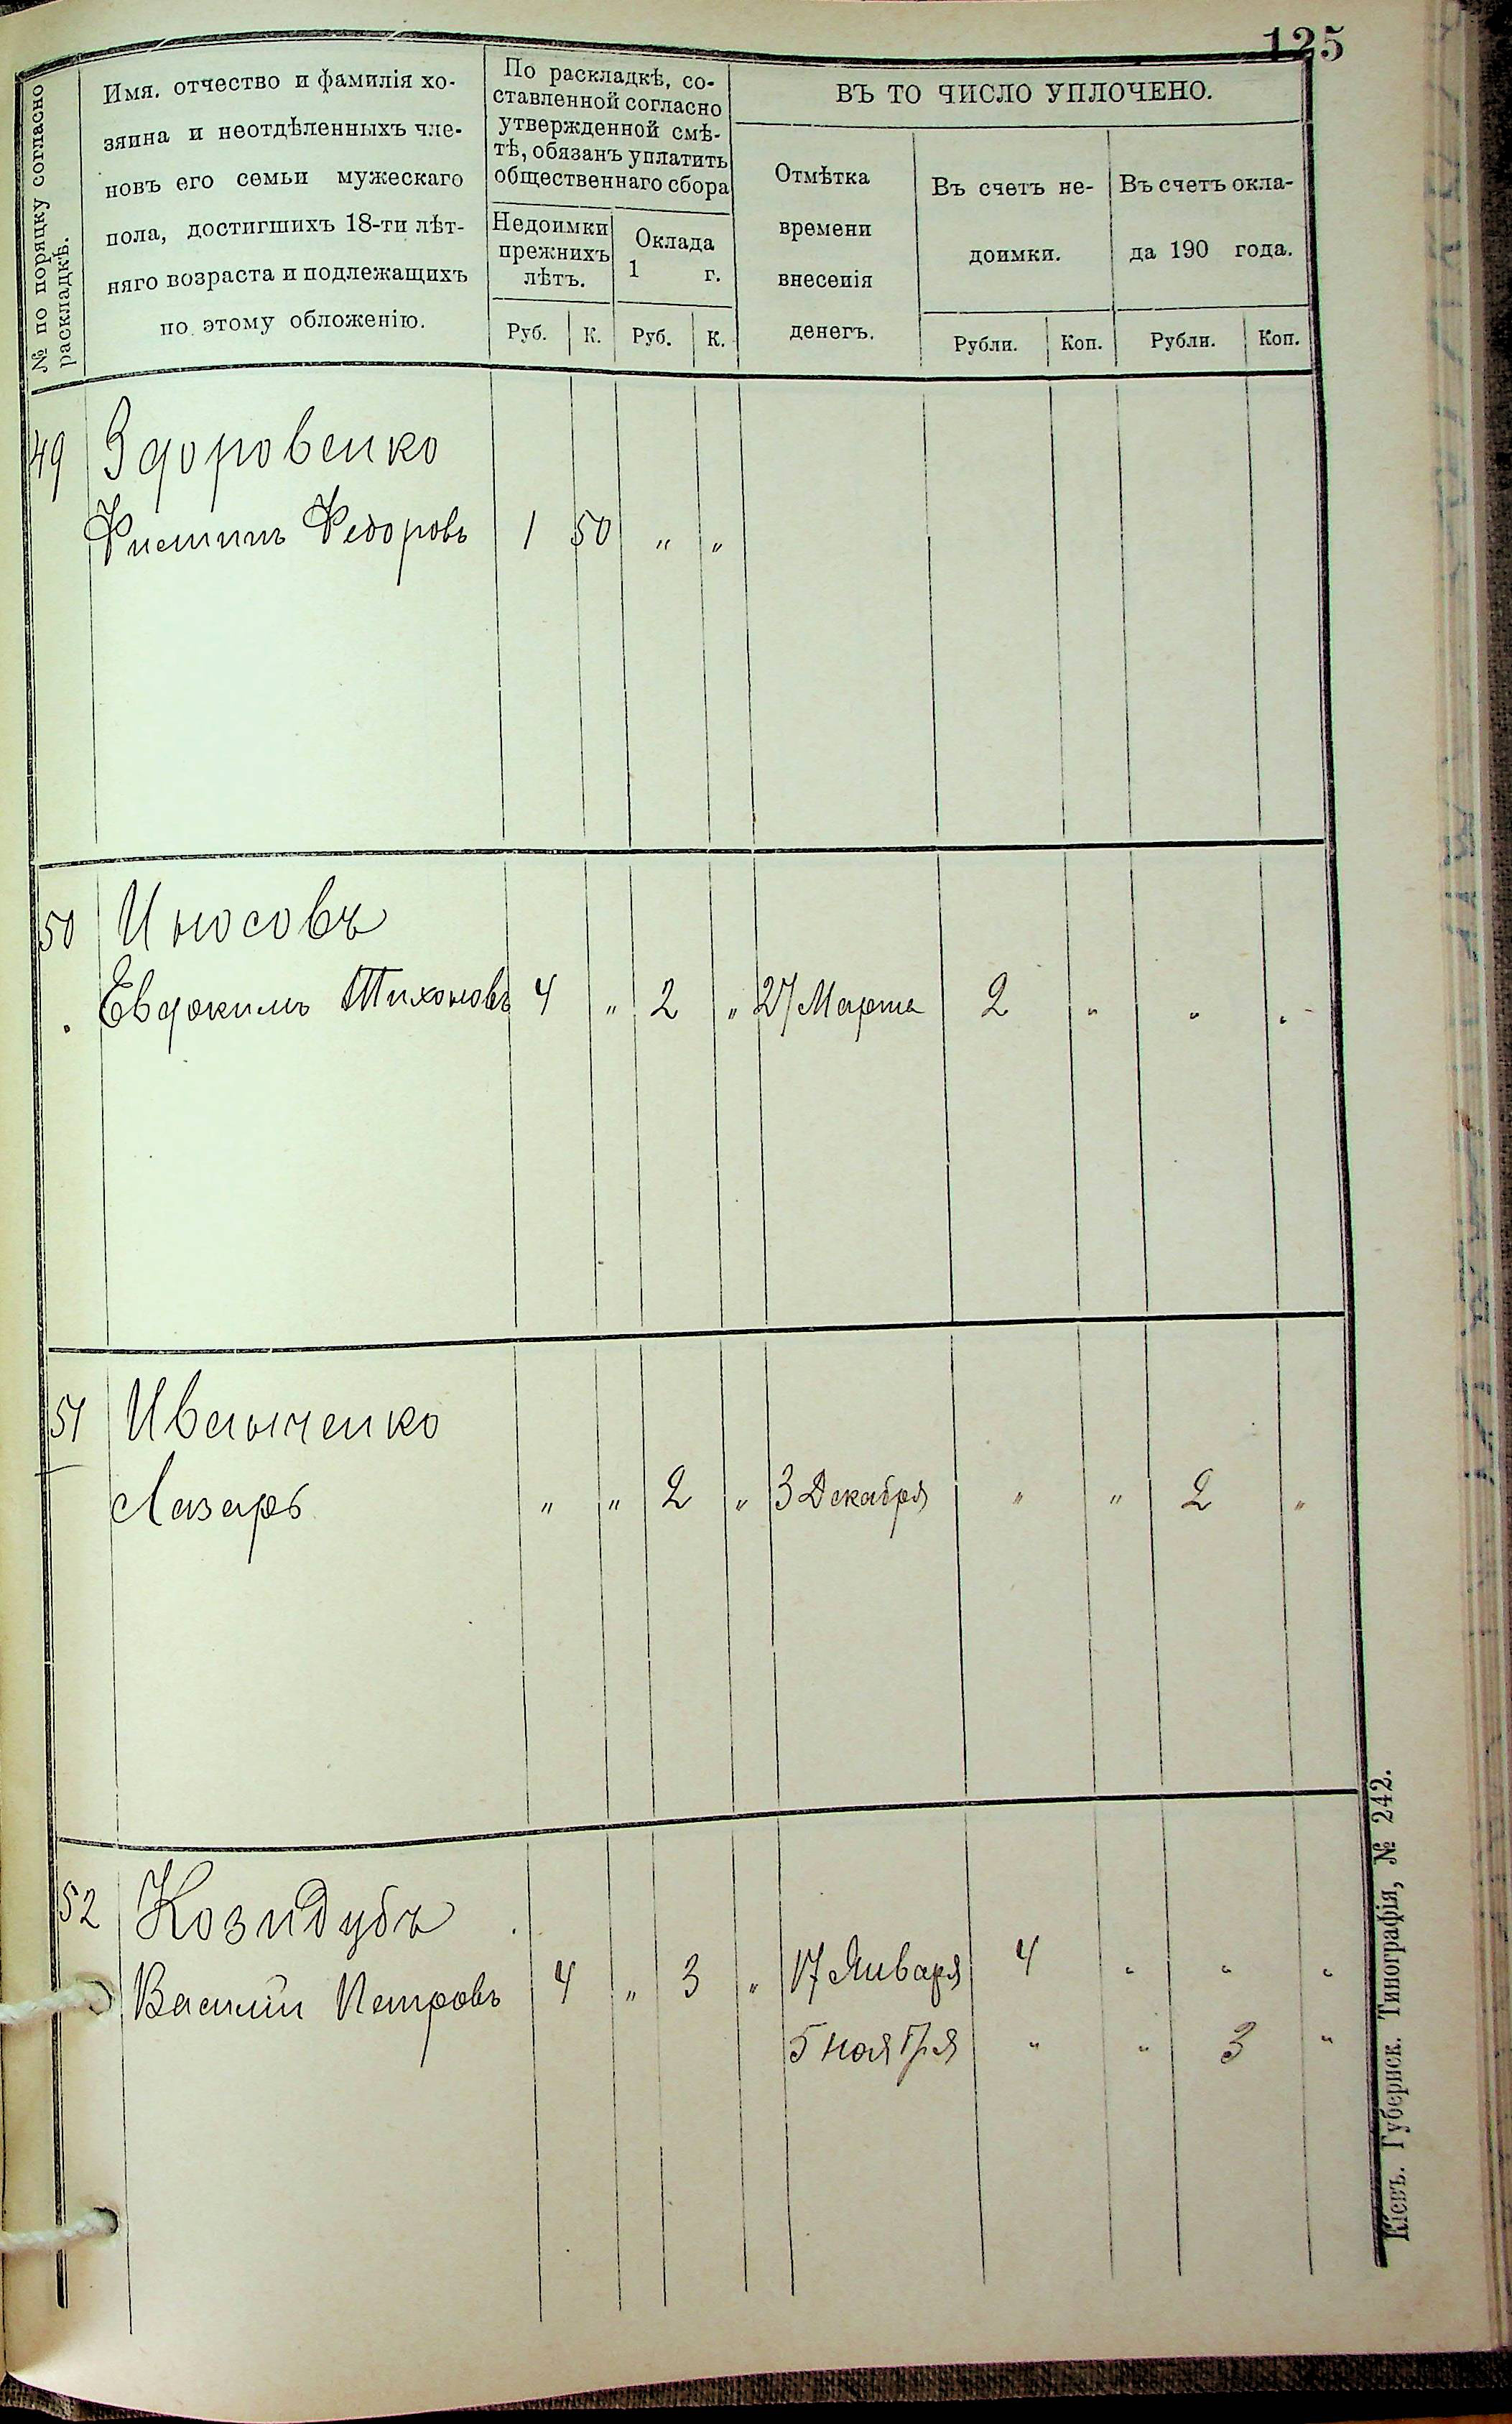 125
№ по поряцку согласно
раскладкѣ.
Имя. отчество и фамилія хо-
зяина и неотдѣленныхъ чле-
новъ его семьи мужескаго
пола, достигшихъ 18-ти лѣт-
няго возраста и подлежащихъ
по этому обложенію.
По раскладкѣ, со-
ставленной согласно
утвержденной смѣ-
тѣ, обязанъ уплатить
общественнаго сбора
Недоимки
прежнихъ
лѣтъ.
Оклада
1 г.
Руб. К. Руб. К.
ВЪ ТО ЧИСЛО УПЛОЧЕНО.
Отмѣтка
времени
внесенія
денегъ.
Въ счетъ не-
доимки.
Въ счетъ окла-
да 190 года.
Рубли. Коп. Рубли. Коп.
49 Здоровенко
Федоровъ 1 50 „ „
50 Иносовъ
Евдокимъ Тихоновъ 4 „ 2 „ 27 Марта 2 „ „ „
51 Иванченко
Лазарь „ „ 2 „ 3 Декабря „ „ 2 „
52 Козидубъ
Василій Петровъ 4 „ 3 „ 17 Января 4 „ „ „
5 ноября „ „ 3 „
Кіевъ. Губернск. Типографія, № 242.